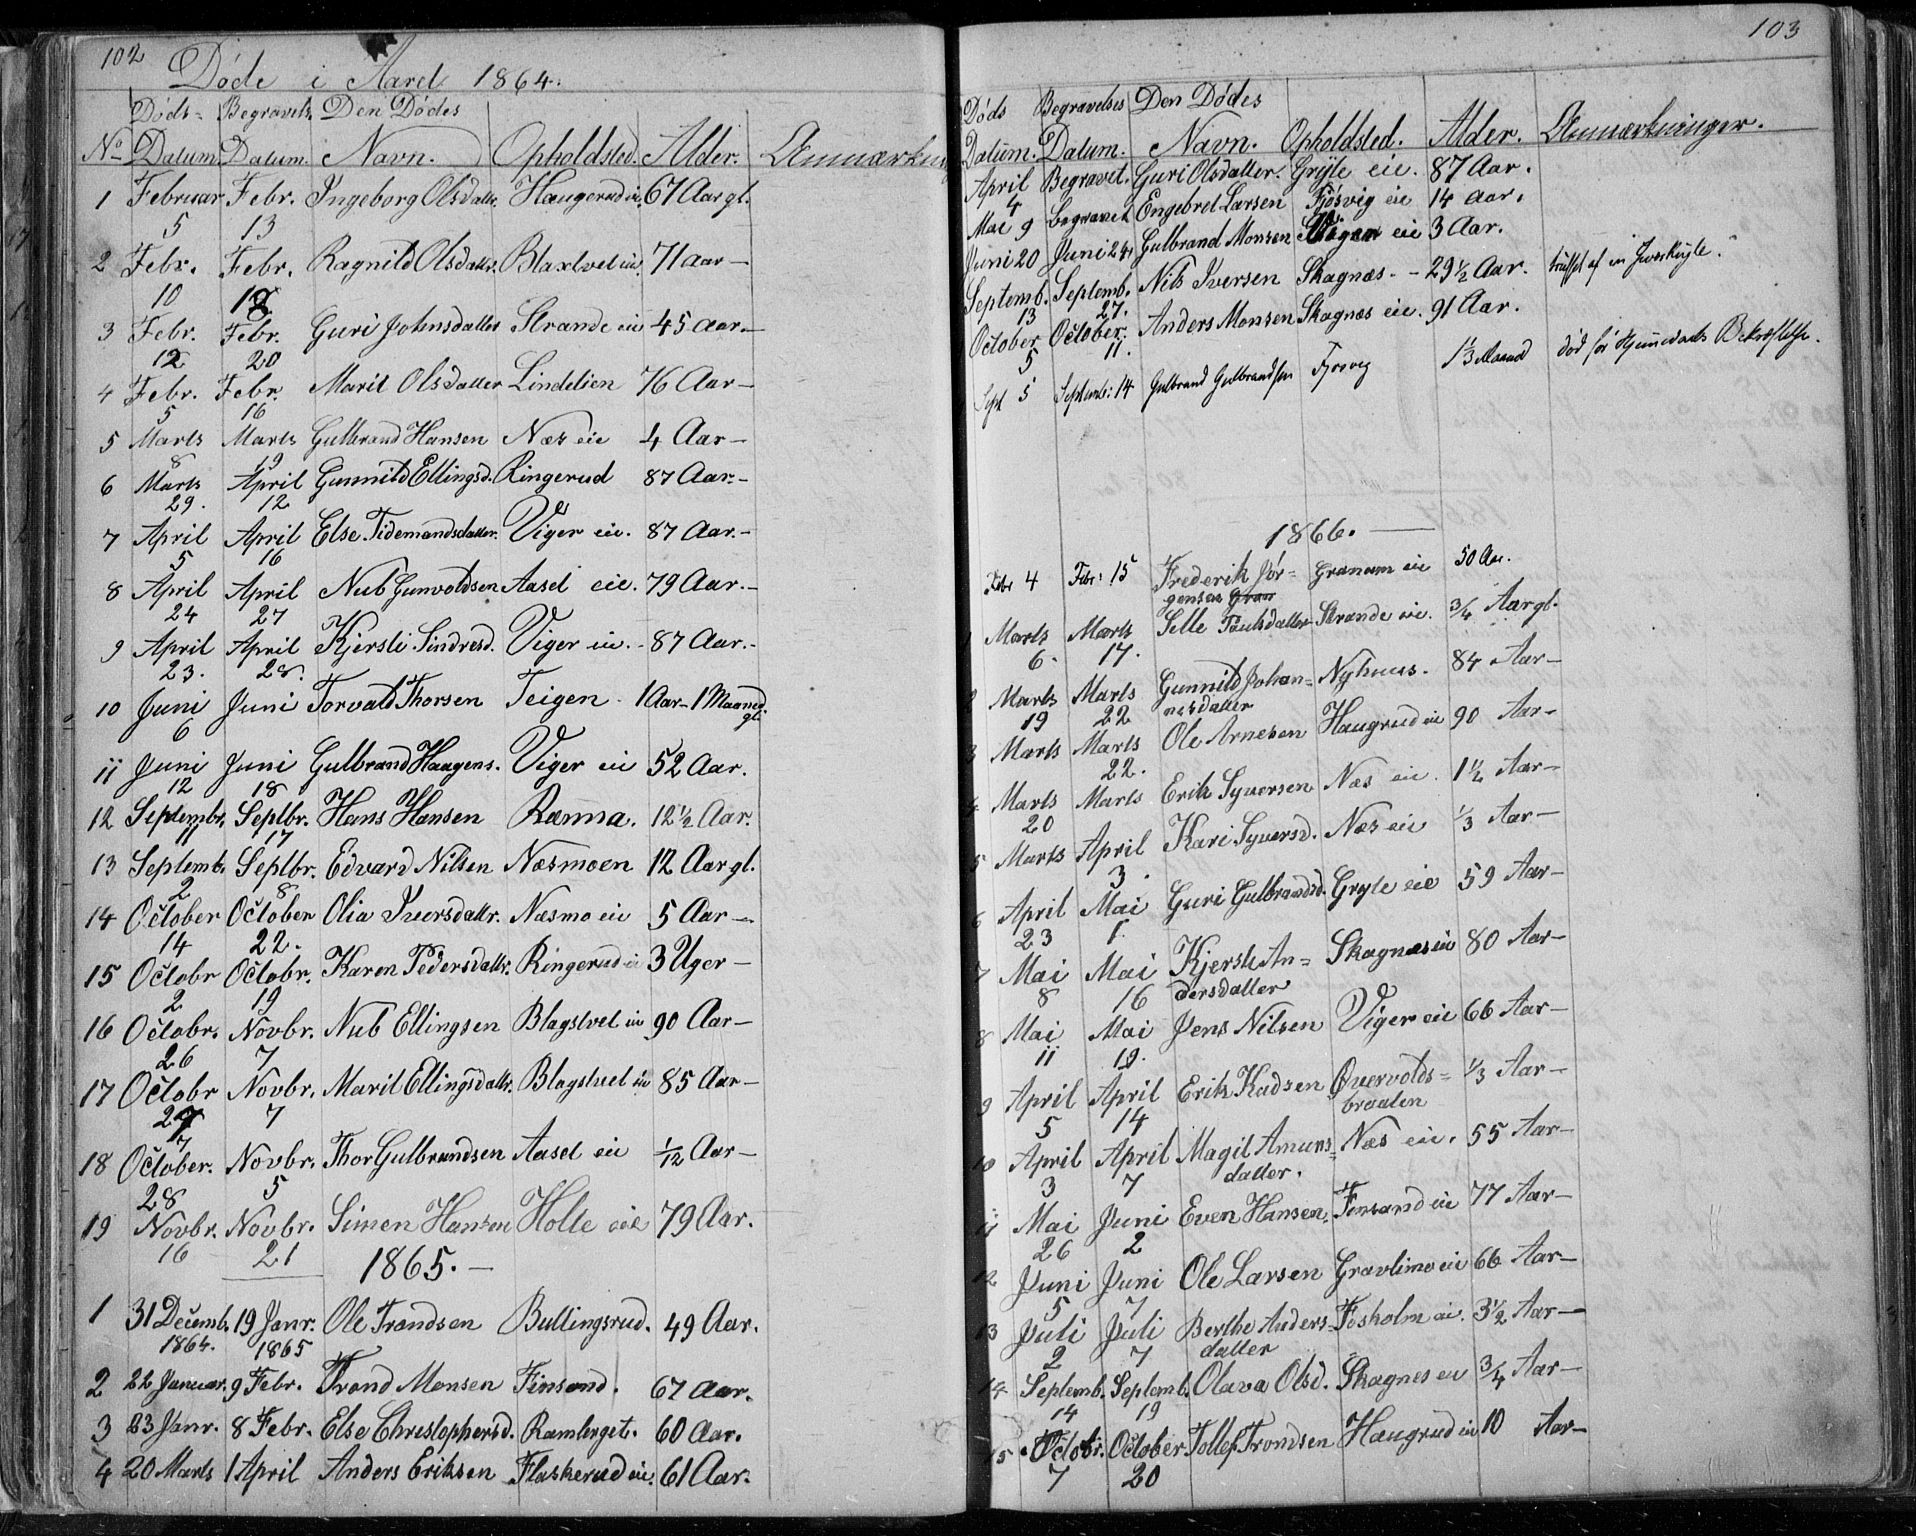 102
Døde i Aaret 1864.
Døds- Begravels. Den Dødes
No Datum Datum. Navn. Opholdsted. Alder. Anmærkning
1 Februar Febr. Ingeborg Olsdattr. Haugerud eie 67 Aar gl.
5 13
2 Febr. Febr. Ragnild Olsdattr. Blaxtvet eie 71 aar —
10 18
3 Febr. Febr. Guri Johnsdatter Strande eie 45 Aar. —
12 20
4 Febr. Febr. Marit Olsdatter Lindelien 76 Aar —
5 16
5 Marts Marts Gulbrand Hansen Næs eie 4 Aar —
8 19
6 Marts April Gunnild Ellingsd. Ringerud 87 Aar. —
29. 12
7 April April Else Tidemandsdatter. Viger eie. 87 Aar. —
5 16
8 April April Nub Gunvoldsen Aasel eie. 79 Aar. —
24 27
9 April April Kjersti Sindresd. Viger eie. - 87 Aar. -
23. 28.
10 Juni Juni Torvald Thorsen Teigen 1 Aar - 1 Maaned.
6 gl.
11 Juni Juni Gulbrand Haagens. Viger eie 52 Aar.
12 18
12 Septembr. Septbr. Hans Hansen Ramna. 12 1/2 Aar.
11 17
13 Septemb. Septbr. Edvard Nilsen Næsmoen 12 Aar gl.
2 8
14 October October Olia Iversdattr. Næsmo eie 5 Aar —
14 22.
15 Octobr Octobr. Karen Pedersdattr. Ringerud ei 3 Uger —
2 19
16 Octobr. Novbr. Nub Ellingsen Blagstvet eie 90 Aar —
26 7
17 Octobr Novbr. Marit Ellingsdattr. Blagstvet eie 85 Aar —
27 7
7
18 October. Novbr. Thor Gulbrandsen Aasel eie 1/12 Aar —
28 5
19 Novbr. Novbr. Simen Hansen Holte eie 79 Aar.
16 21
1865. —
1 31 Decemb. 19 Janr. Ole Trondsen Bullingsrud. 49 Aar.
1864. 1865
2 22 Januar. 9 Febr. Trond Monsen Finsand. 67 Aar.
3 23 Janr. 8 Febr. Else Christophersd. Ramberget. 60 Aar.
4 20 Marts 1 April Anders Eriksen Flaskerud eie. 61 Aar.
103
Døds Begravelses Den Dødes
Datum. Datum. Navn. Opholdsted. Alder. Anmærkninger.
April Begravet. Guri Olsdatter. Gryte eie. 87 Aar.
4
Mai 9 begravet Engebret Larsen Fjøsvig eie 14 Aar.
Juni 20 Juni 24 Gulbrand Monsen eie 3 Aar.
Septemb. Septemb. Nils Iversen Skagnæs. - 29 1/2 Aar. af en
13 27.
October October. Anders Monsen Skagnæs eie. 91 Aar.
5 11.
Sept 5 Septemb: 14 Gulbrand Gulbrandsen Fjosvig 1 1/3 Maaned død før Hjemmedaabs Bekræftelse.
1866. —
Febr 4 Febr: 15 Frederik Jør- Granum eie 50 Aar.
gensen
1 Marts Marts Selle Paulsdatter Strande eie. 3/4 Aar gl.
6. 17.
2 Marts Marts Gunnild Johan- Nyhuus. 84 Aar —
19 22 nesdatter
3 Marts Marts Ole Arnesen Haugrud eie 90 Aar —
22.
4 Marts Marts Erik Syversen Næs eie. 1 1/2 Aar —
20
5 Marts April Kari Syversd. Næs eie 1/3 Aar —
3.
6 April Mai Guri Gulbrandsd. Gryte eie 59 Aar —
23 1.
7 Mai Mai Kjersti An- Skagnæs eie 80 Aar —
8 16 dersdatter
8 Mai Mai Jens Nilsen Viger eie 66 Aar —
11 19.
9 April April Erik Kndsen Overvolds- 1/3 Aar —
5 14 braaten
10 April April Magil Amuns- Næs eie. 55 Aar —
3 7 datter.
11 Mai Juni Even Hansen. Finsand eie 77 Aar —
26 2
12 Juni Juni Ole Larsen Gravlimo eie 66 Aar —
5 7
13 Juli Juli Berthe Anders- Foskolm eie. 3 1/2 Aar —
2 7 datter
14 Septemb. Septemb. Olava Olsd. Skagnes eie 3/4 Aar —
14 19
15 Octobr. October. Tollef Trondsen Haugrud eie 10 Aar —
7 20